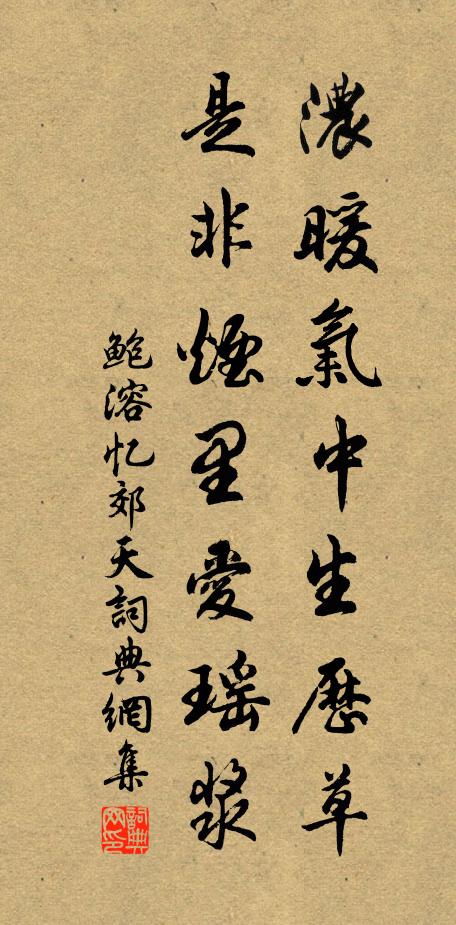 濃暖氣中生歷草
是非煙里愛瑤漿
鮑溶忆郊天詞典網集
詞典網印